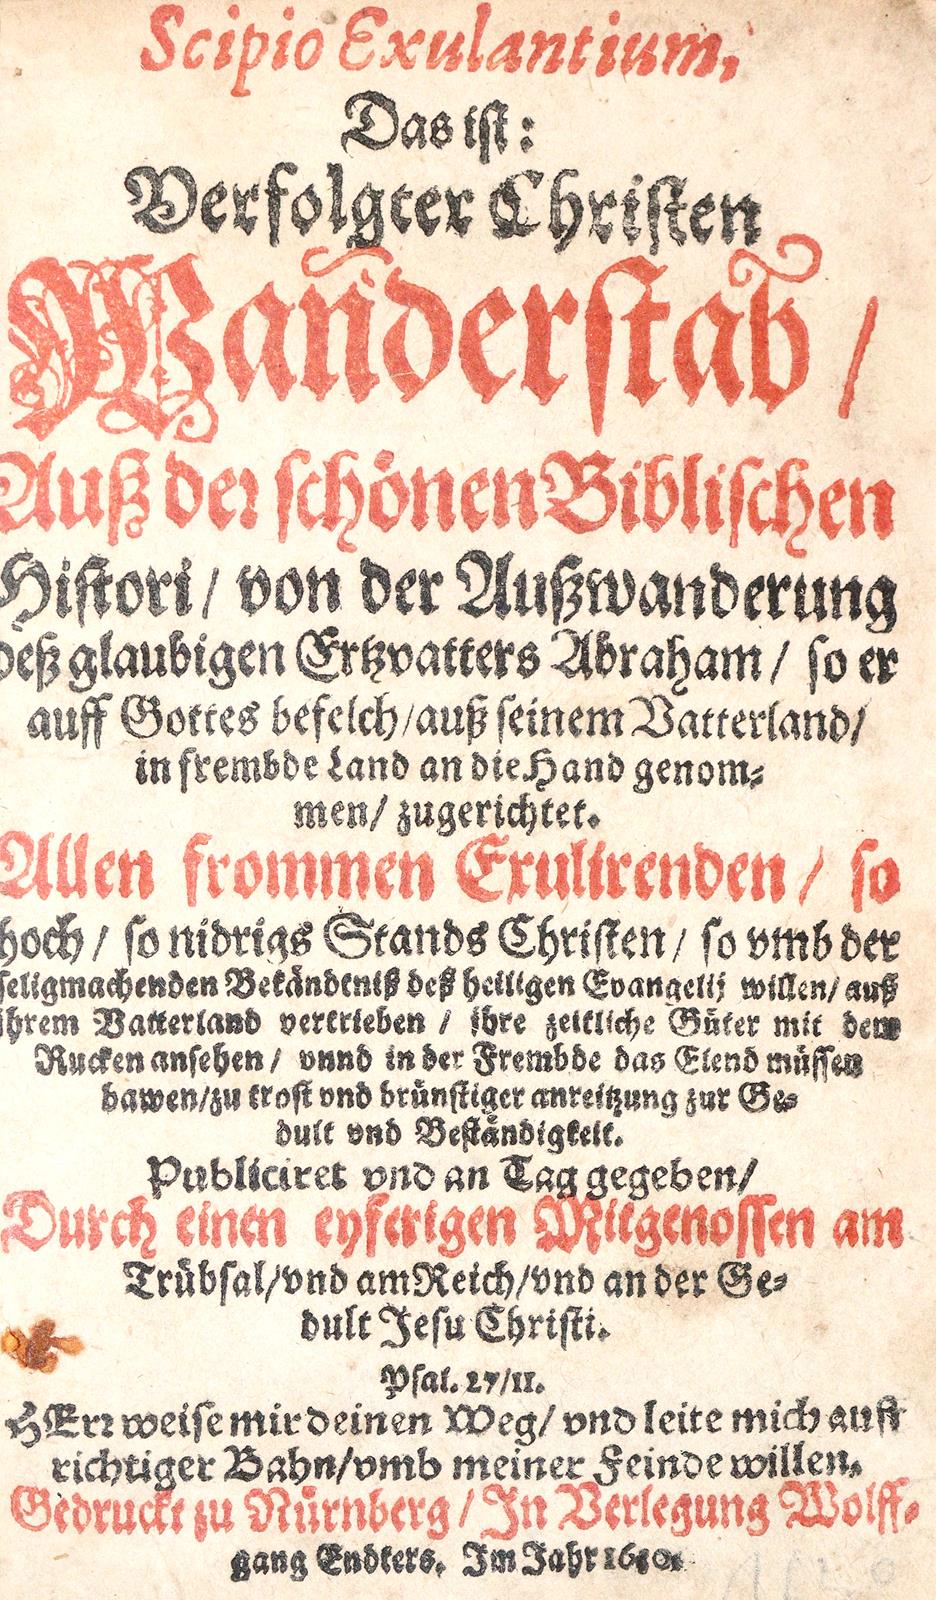 Scipio Exulantium,
Das ist:
Verfolgter Christen
Wanderstab /
Auß der schönen Biblischen
Histori / von der Außwanderung
deß glaubigen Ertzvatters Abraham / so er
auff Gottes befelch / auß seinem Vatterland /
in frembde Land an die Hand genom⸗
men / zugerichtet.
Allen frommen Exulirenden / so
hoch / so nidrigs Stands Christen / so vmb der
seligmachenden Bekändtniß deß heiligen Evangelij willen / auß
ihrem Vatterland vertrieben / ihre zeitliche Güter mit dem
Rucken ansehen / vnnd in der Frembde das Elend müssen
bawen / zu trost vnd brünstiger anreitzung zur Ge⸗
dult vnd Beständigkeit.
Publiciret vnd an Tag gegeben /
Durch einen eyferigen Mitgenossen am
Trübsal / vnd am Reich / vnd an der Ge⸗
dult Jesu Christi.
Psal. 27 / 11.
HErr weise mir deinen Weg / vnd leite mich auff
richtiger Bahn / vmb meiner Feinde willen.
Gedruckt zu Nürnberg / In Verlegung Wolff⸗
gang Endters. Im Jahr